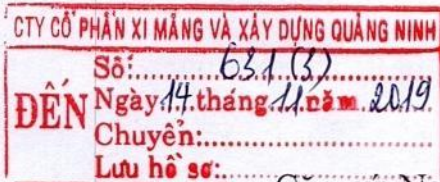 CTY CỔ PHẦN XI MĂNG VÀ XÂY DỰNG QUẢNG NINH
ĐẾN
Số: 631 (3)
Ngày 14 tháng 11 năm 2019
Chuyển:
Lưu hồ sơ: